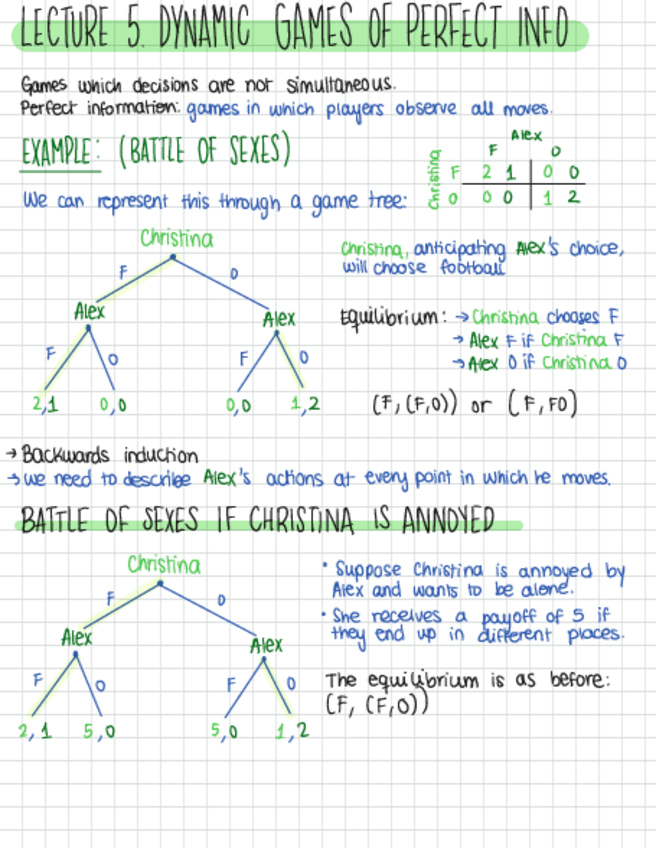 LECTURE 5. DYNAMIC GAMES OF PERFECT INFO
Games which decisions are not simultaneous.
Perfect information: games in which players observe all moves.
EXAMPLE: (BATTLE OF SEXES)
Alex
F O
Christina F 2 1 0 0
O 0 0 1 2
We can represent this through a game tree:
Christina
F O
Alex Alex
F O F O
2,1 0,0 0,0 1,2
Christina, anticipating Alex's choice,
will choose football
Equilibrium: → Christina chooses F
→ Alex F if Christina F
→ Alex O if Christina O
(F, (F,O)) or (F, FO)
→ Backwards induction
→ we need to describe Alex's actions at every point in which he moves.
BATTLE OF SEXES IF CHRISTINA IS ANNOYED
Christina
F O
Alex Alex
F O F O
2,1 5,0 5,0 1,2
• Suppose Christina is annoyed by
Alex and wants to be alone.
• She receives a payoff of 5 if
they end up in different places.
The equilibrium is as before:
(F, (F,O))